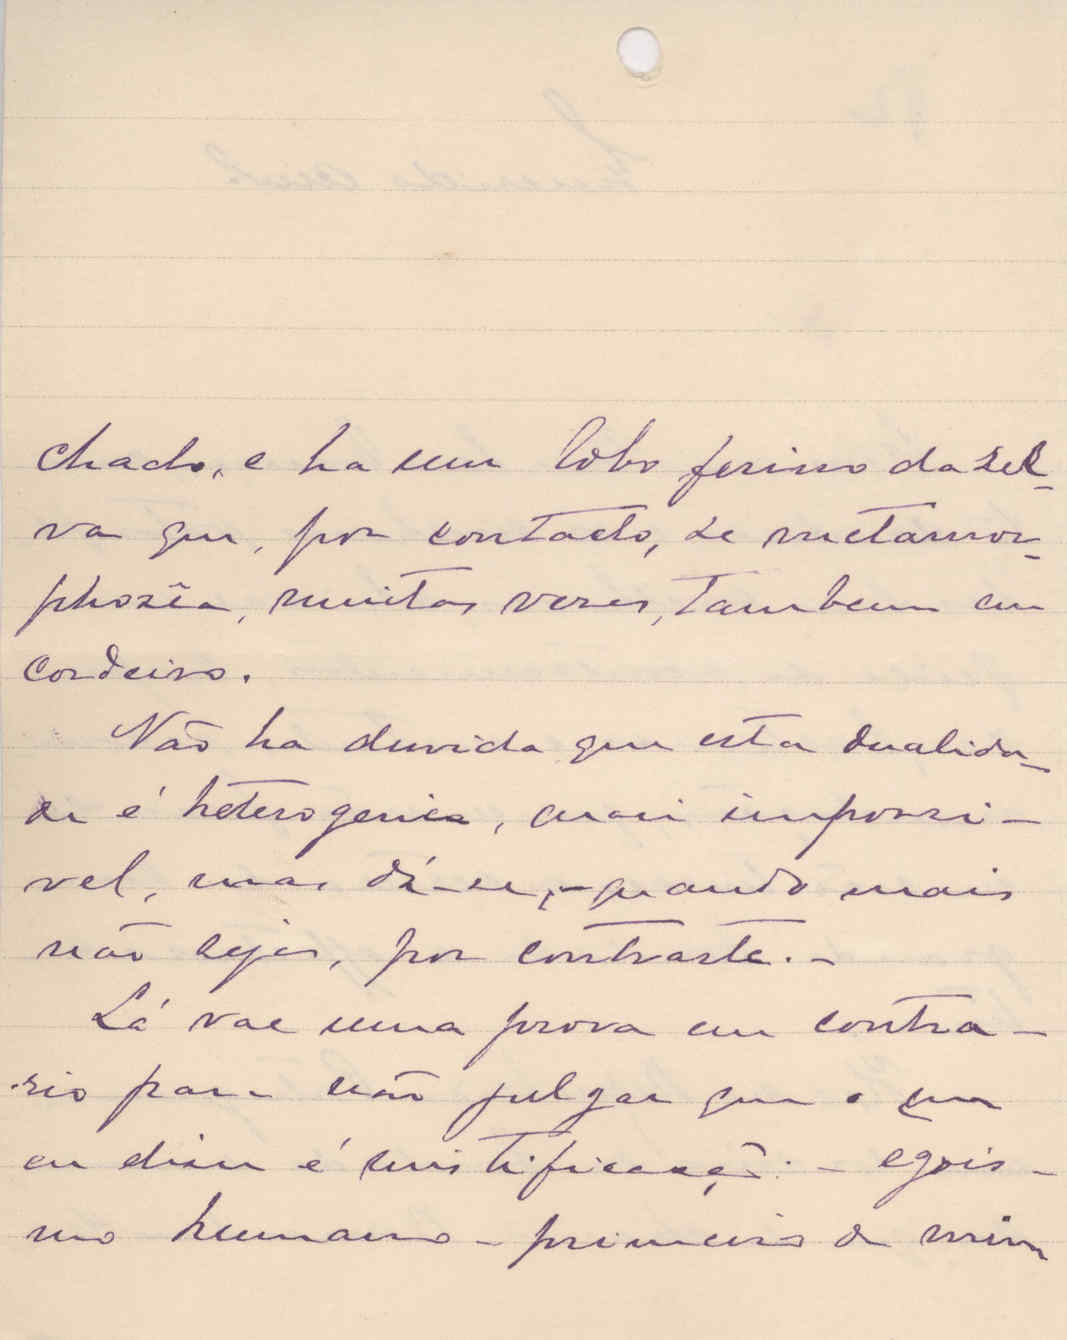 chado, e ha um lobo ferino da sel-
va que, por contacto, se metamor-
phosêa, muitas vezes, tambem em
cordeiro.
Não ha duvida que esta dualida-
de é heterogenica, quasi impossi-
vel, mas dá-se, - quando mais
não seja, por contraste. -
Lá vae uma prova em contra-
rio para não julgar que o que
eu disse é mistificação: - egois-
mo humano - primeiro de mim